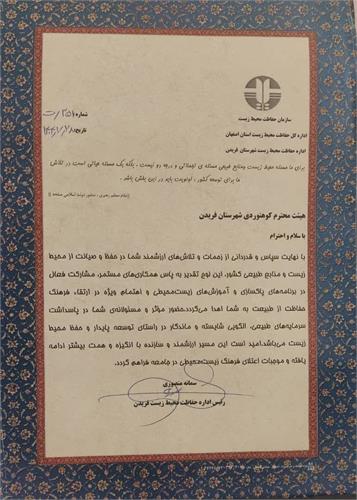 سازمان حفاظت محیط زیست
اداره کل حفاظت محیط زیست استان اصفهان
اداره حفاظت محیط زیست شهرستان فریدن
شماره
تاریخ
برای ما مسئله محیط زیست ومنابع طبیعی مسئله ی تجملاتی و درجه دو نیست ، بلکه یک مسئله حیاتی است در تلاش
ما برای توسعه کشور ، اولویت باید در این بخش باشد .
(مقام معظم رهبری ،
هیئت محترم کوهنوردی شهرستان فریدن
با سلام و احترام
با نهایت سپاس و قدردانی از زحمات و تلاش‌های ارزشمند شما در حفظ و صیانت از محیط
زیست و منابع طبیعی کشور، این لوح تقدیر به پاس همکاری‌های مستمر، مشارکت فعال
در برنامه‌های پاکسازی و آموزش‌های زیست‌محیطی و اهتمام ویژه در ارتقاء فرهنگ
حفاظت از طبیعت به شما اهدا می‌گردد.حضور مؤثر و مسئولانه‌ی شما در پاسداشت
سرمایه‌های طبیعی، الگویی شایسته و ماندگار در راستای توسعه پایدار و حفظ محیط
زیست می‌باشد.امید است این مسیر ارزشمند و سازنده با انگیزه و همت بیشتر ادامه
یافته و موجبات اعتلای فرهنگ زیست‌محیطی در جامعه فراهم گردد.
سمانه منصوری
رئیس اداره حفاظت محیط زیست فریدن